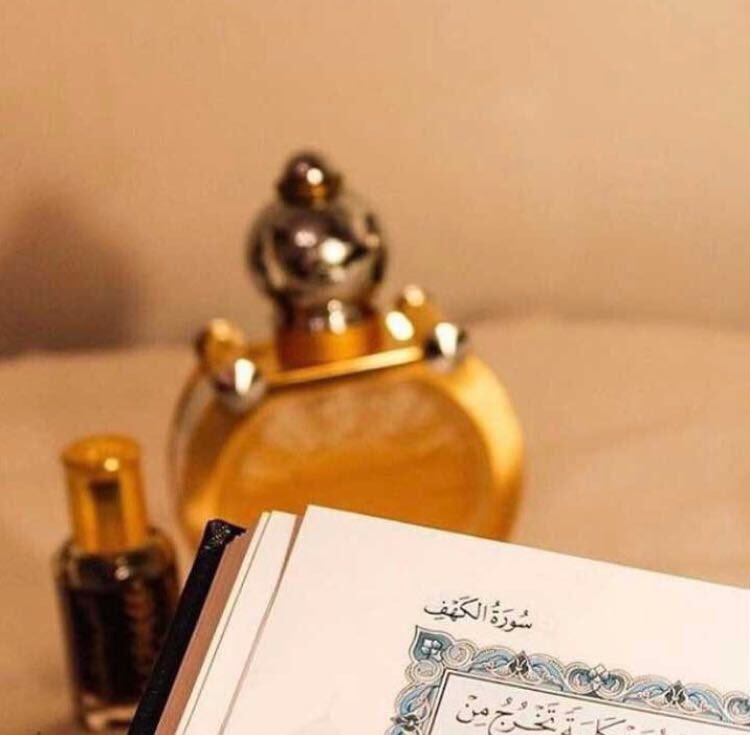 سُورَةُ الكَهْفِ
كَلِمَةً تَخْرُجُ مِنْ